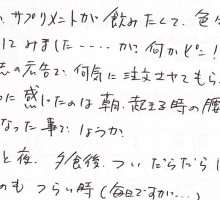 、サプリメントが飲みたくて、色
してみました・・・・が、何かピン!
志の広告で、何気に注文させてもら
に感じたのは朝、起きる時の腰
なった事でしょうか。
と夜、夕食後、ついだらだらし
のもつらい時(毎日ですが…)